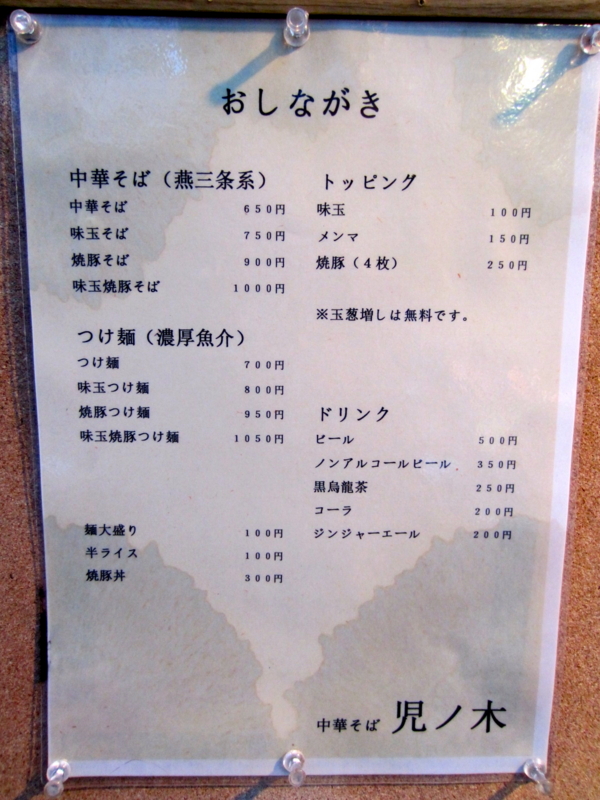 おしながき
中華そば（燕三条系）
中華そば 650円
味玉そば 750円
焼豚そば 900円
味玉焼豚そば 1000円
つけ麺（濃厚魚介）
つけ麺 700円
味玉つけ麺 800円
焼豚つけ麺 950円
味玉焼豚つけ麺 1050円
麺大盛り 100円
半ライス 100円
焼豚丼 300円
トッピング
味玉 100円
メンマ 150円
焼豚（4枚） 250円
※玉葱増しは無料です。
ドリンク
ビール 500円
ノンアルコールビール 350円
黒烏龍茶 250円
コーラ 200円
ジンジャーエール 200円
中華そば 児ノ木